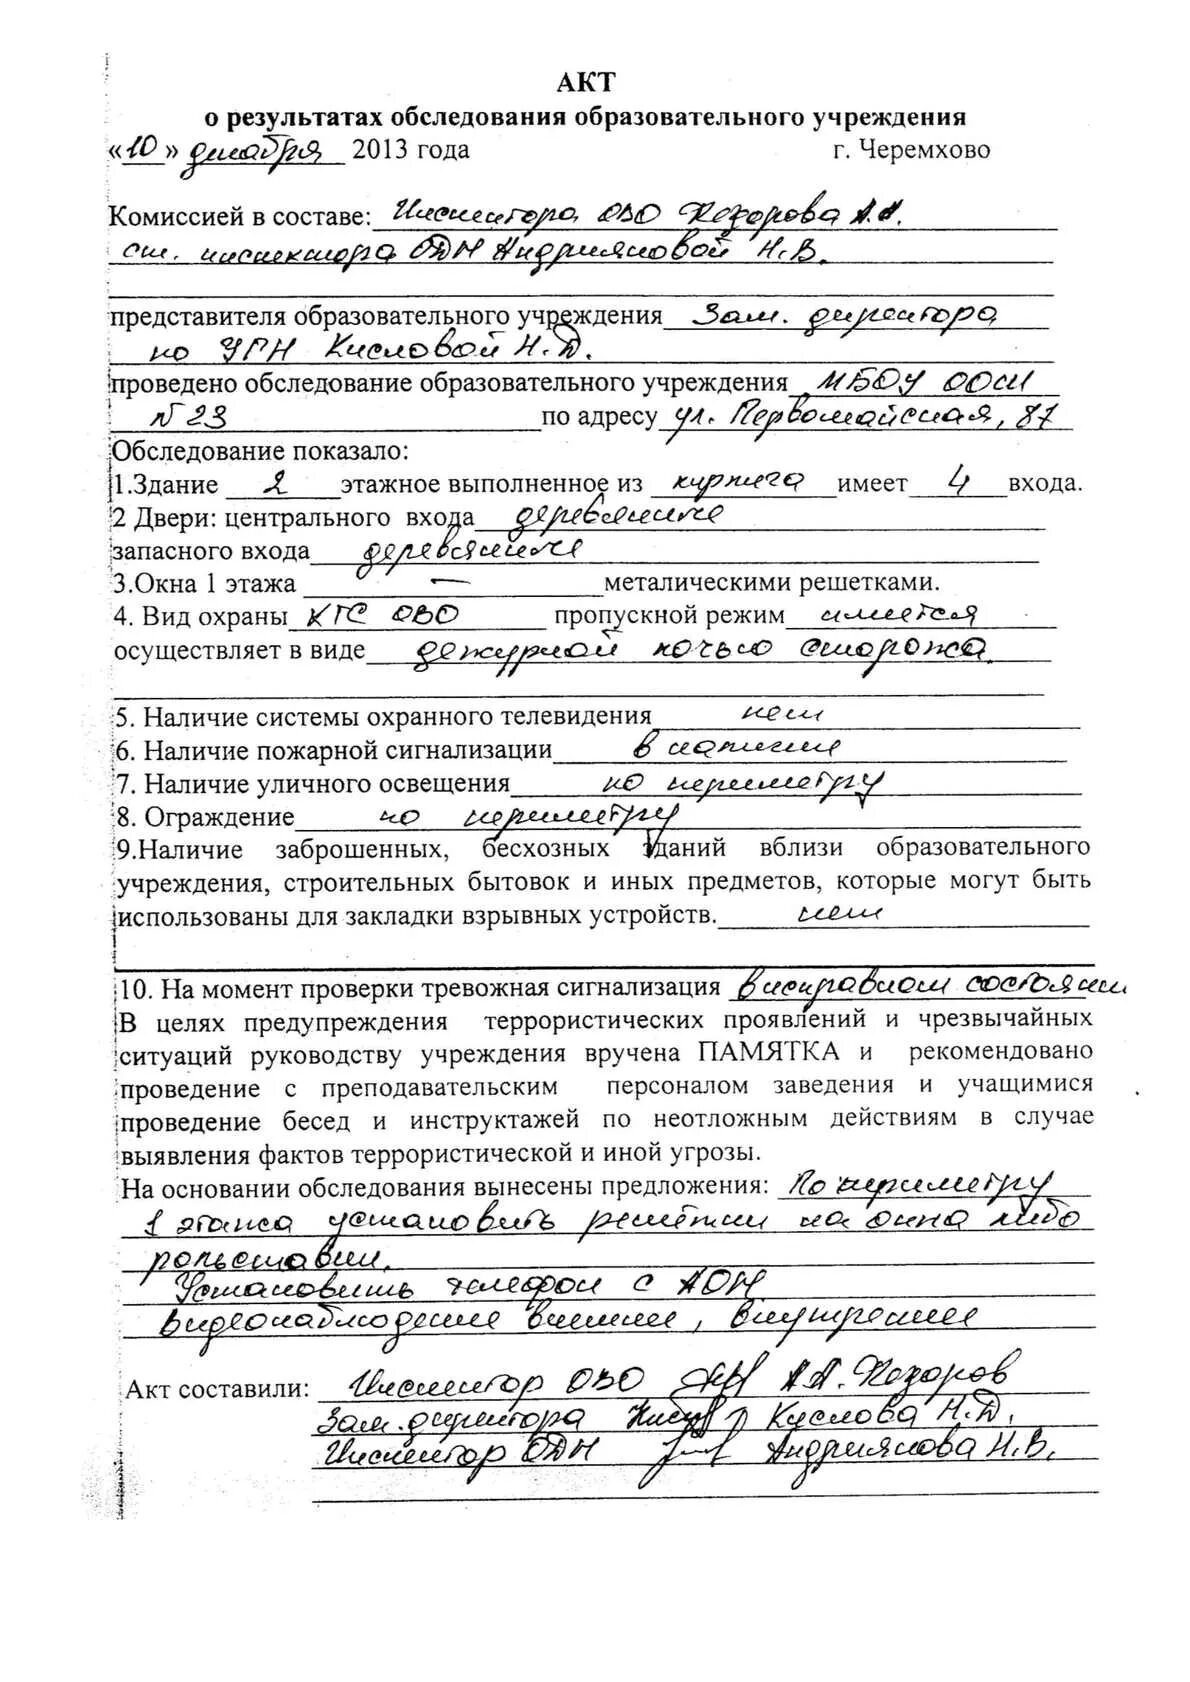 АКТ
о результатах обследования образовательного учреждения
«10» декабря 2013 года г. Черемхово
Комиссией в составе: Инспектора ОВО Федорова А.А.
ст. инспектора ОДН Андрияновой Н.В.
представителя образовательного учреждения Зам. директора
по УРН Кисловой Н.Д.
проведено обследование образовательного учреждения МБОУ ООСШ
№ 23 по адресу ул. Первомайская, 87
Обследование показало:
1.Здание 2 этажное выполненное из кирпича имеет 4 входа.
2 Двери: центрального входа деревянные
запасного входа деревянные
3.Окна 1 этажа — металическими решетками.
4. Вид охраны КТС ОВО пропускной режим имеется
осуществляет в виде дежурной ночью сторожа.
5. Наличие системы охранного телевидения нет
6. Наличие пожарной сигнализации в наличии
7. Наличие уличного освещения по периметру
8. Ограждение по периметру
9.Наличие заброшенных, бесхозных зданий вблизи образовательного
учреждения, строительных бытовок и иных предметов, которые могут быть
использованы для закладки взрывных устройств. нет
10. На момент проверки тревожная сигнализация в исправном состоянии
В целях предупреждения террористических проявлений и чрезвычайных
ситуаций руководству учреждения вручена ПАМЯТКА и рекомендовано
проведение с преподавательским персоналом заведения и учащимися
проведение бесед и инструктажей по неотложным действиям в случае
выявления фактов террористической и иной угрозы.
На основании обследования вынесены предложения: По периметру
1 этажа установить решётки на окна либо
рольставни.
Установить телефон с АОН
видеонаблюдение внешнее, внутреннее
Акт составили: Инспектор ОВО А.А. Федоров
Зам. директора Кислова Н.Д.
Инспектор ОДН Андриянова Н.В.